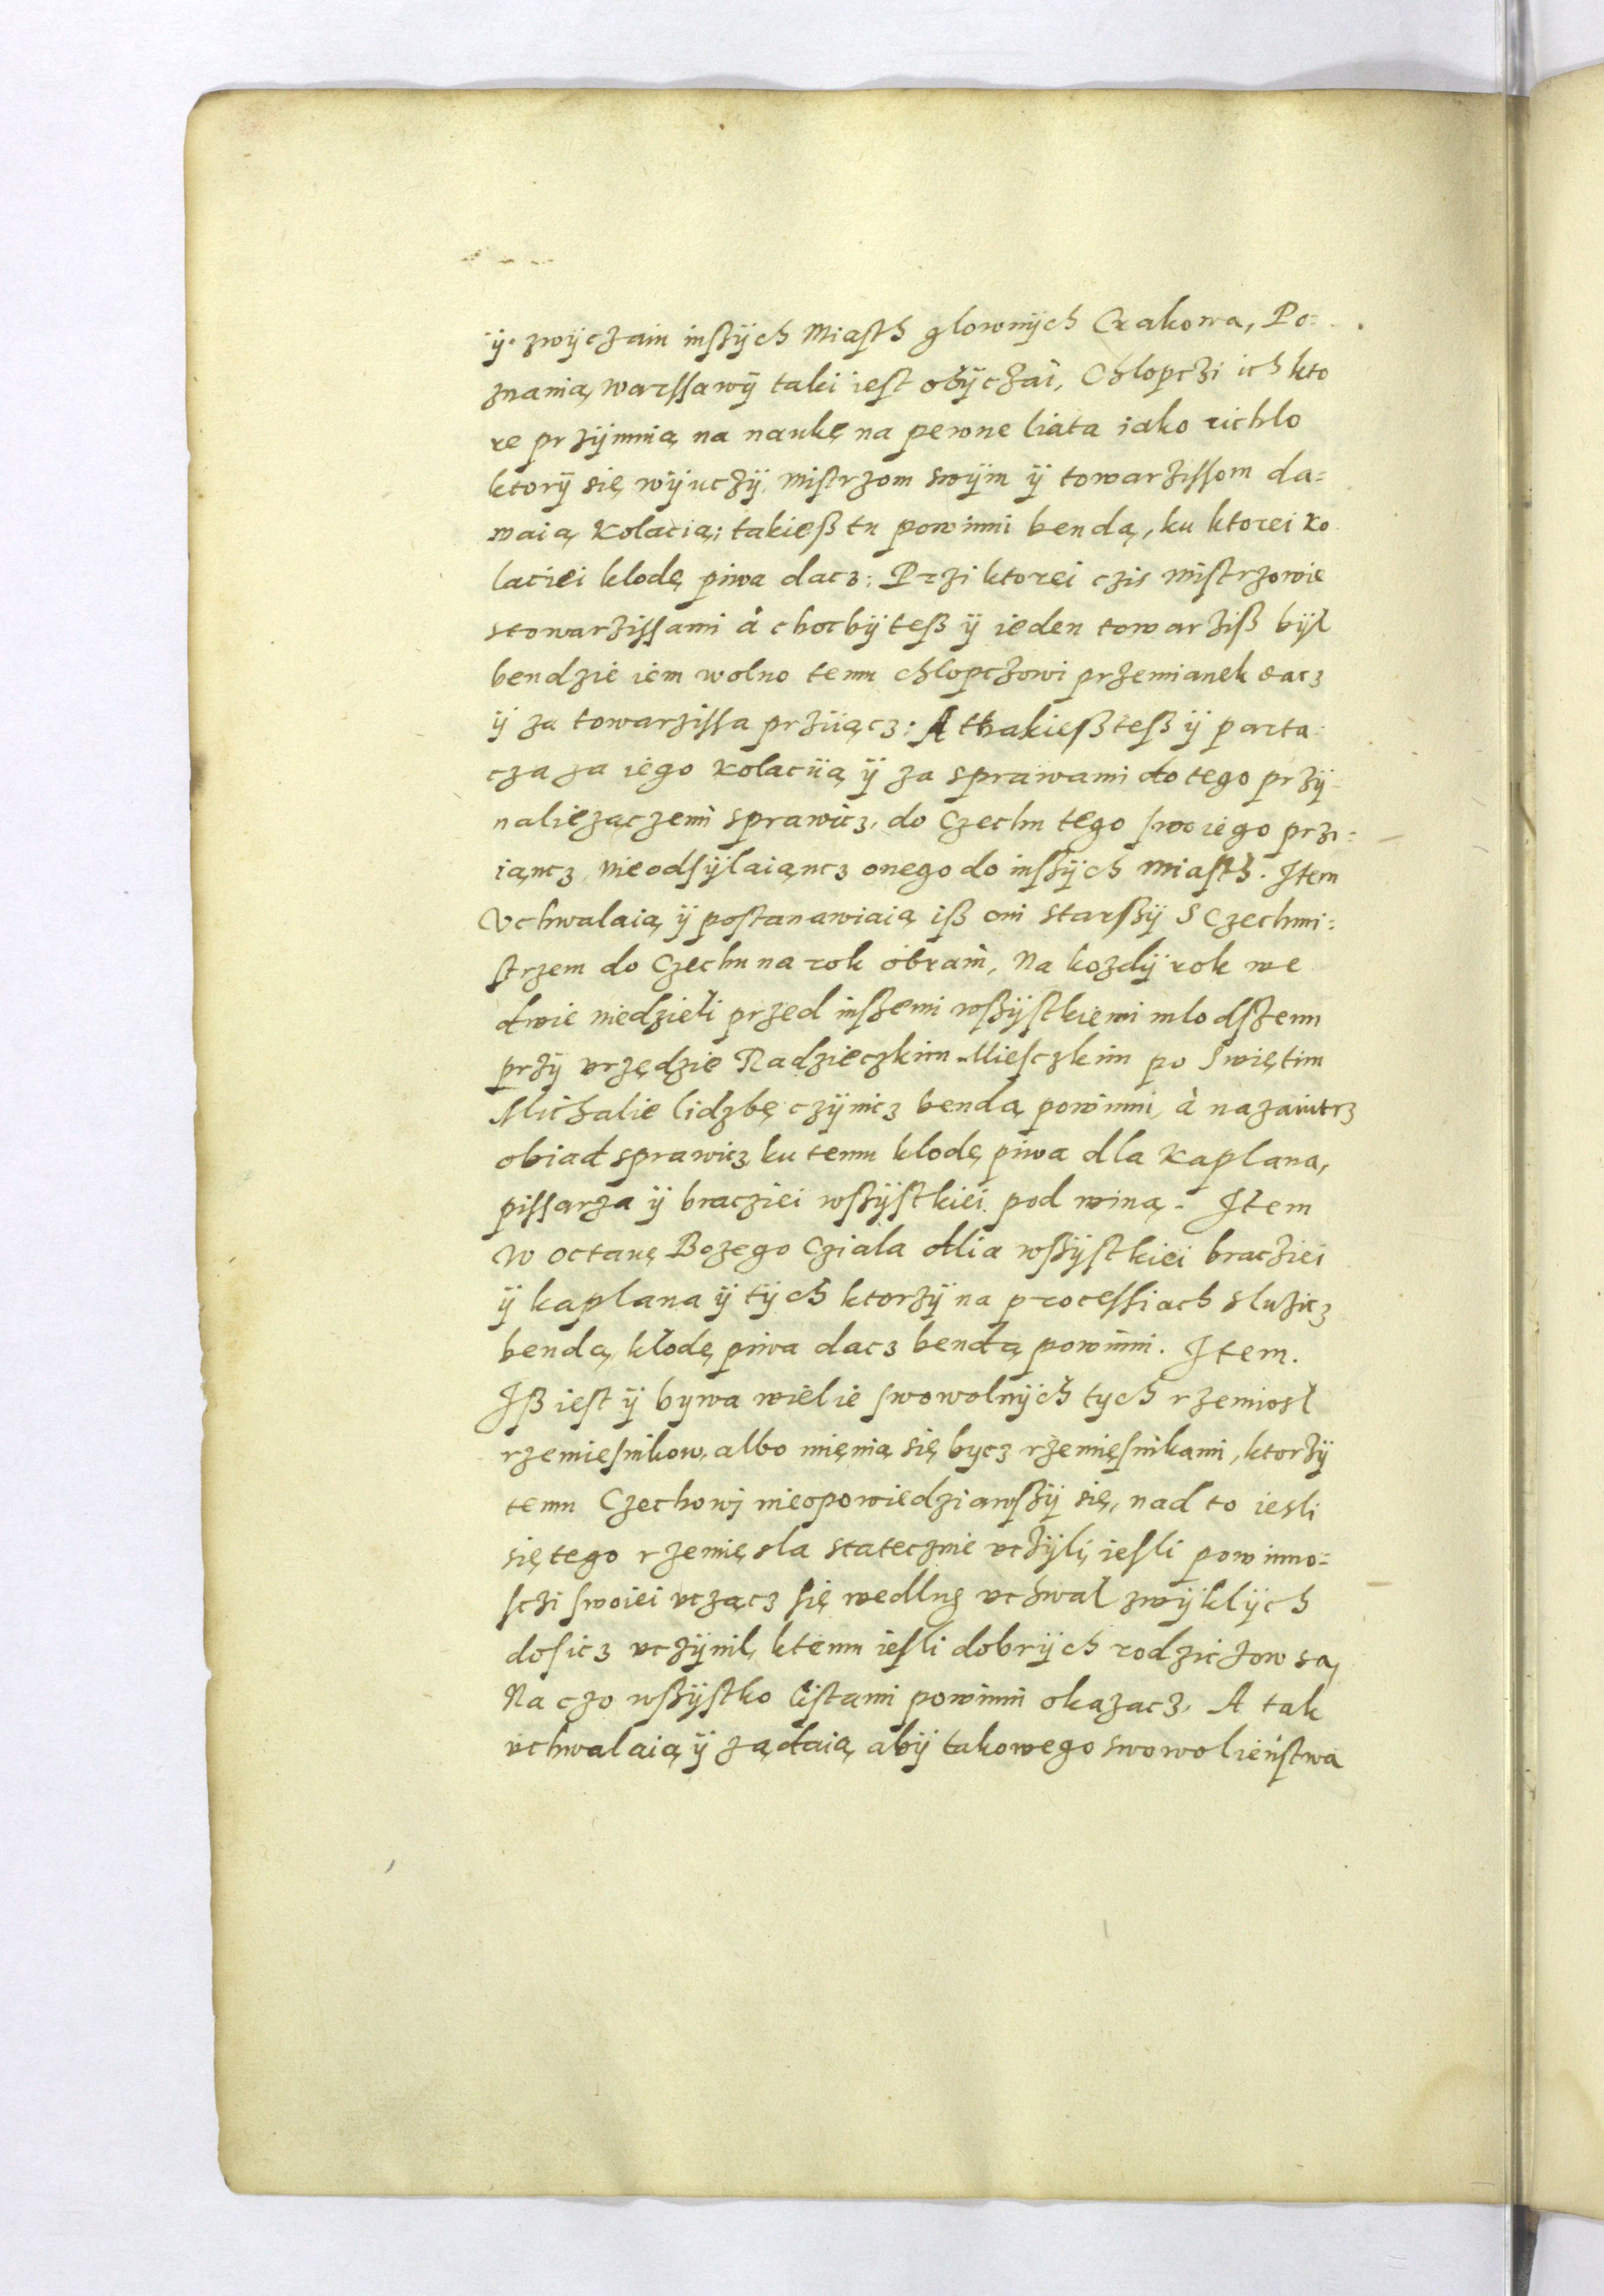 ÿ zwÿczain inßÿch Miasth glownÿch Crakowa, Po=
znania, warssawÿ taki iest obÿczai, Chlopczi ich kto
re przÿmnią na naukę na pewne liata iako richlo
ktorÿ się wÿuczÿ, mistrzom swÿm ÿ towarzissom da=
waią Kolacią; takieß tu powinni bendą, ku ktorei ko
laciei klodę piwa dacz: Przi ktorei czis mistrzowie
stowarzissami à chocbÿ teß ÿ ieden towarziß bÿl
bendzie iem wolno temu chlopczowi przemianek dacz
ÿ za towarzissa przÿiącz: A thakießteß ÿ parta=
cza za iego kolacÿą ÿ za sprawami do tego przÿ=
naliezączemi sprawicz, do Czechu tego swoiego przi=
iąncz nieodsÿlaiąncz onego do inßÿch miasth. Item
Vchwalaią ÿ postanawiaią iß oni starßÿ S Czechmi=
strzem do Czechu na rok obrani, Na kozdÿ rok we
dwie niedzieli przed inßemi wßÿstkiemi mlodßemi
przÿ vrzędzie Radzieczkim Miesczkim po Swiętim
Michalie lidzbę czÿnicz bendą powinni, à nazaiutrz
obiad sprawicz, ku temu klodę piwa dla Kaplana,
pissarza ÿ braczieí wßÿstkiei pod winą. Item
W octawę Bozego Cziala dlia wßÿstkiei bracziei
ÿ kaplana ÿ tÿch ktorzÿ na processiach sluzicz
bendą, klodę piwa dacz bendą powinni. Item.
Iß iest ÿ bywa wielie swowolnÿch tych rzemiosl
rzemiesnikow, albo mięnią się bycz rzemięsnikami, ktorzÿ
temu Czechowj nieopowiedziawßÿ się, nad to iesli
się tego rzemięsla statecznie vczÿli, iesli powinno=
sczi swoiei vcząc się wedlug vchwal zwÿklÿch
dosicz vczÿnil, ktemu iesli dobrÿch rodziczow są,
Na czo wßÿstko listami powinni okazacz. A tak
vchwalaią ÿ ządaią abÿ takowego swowolieństwa